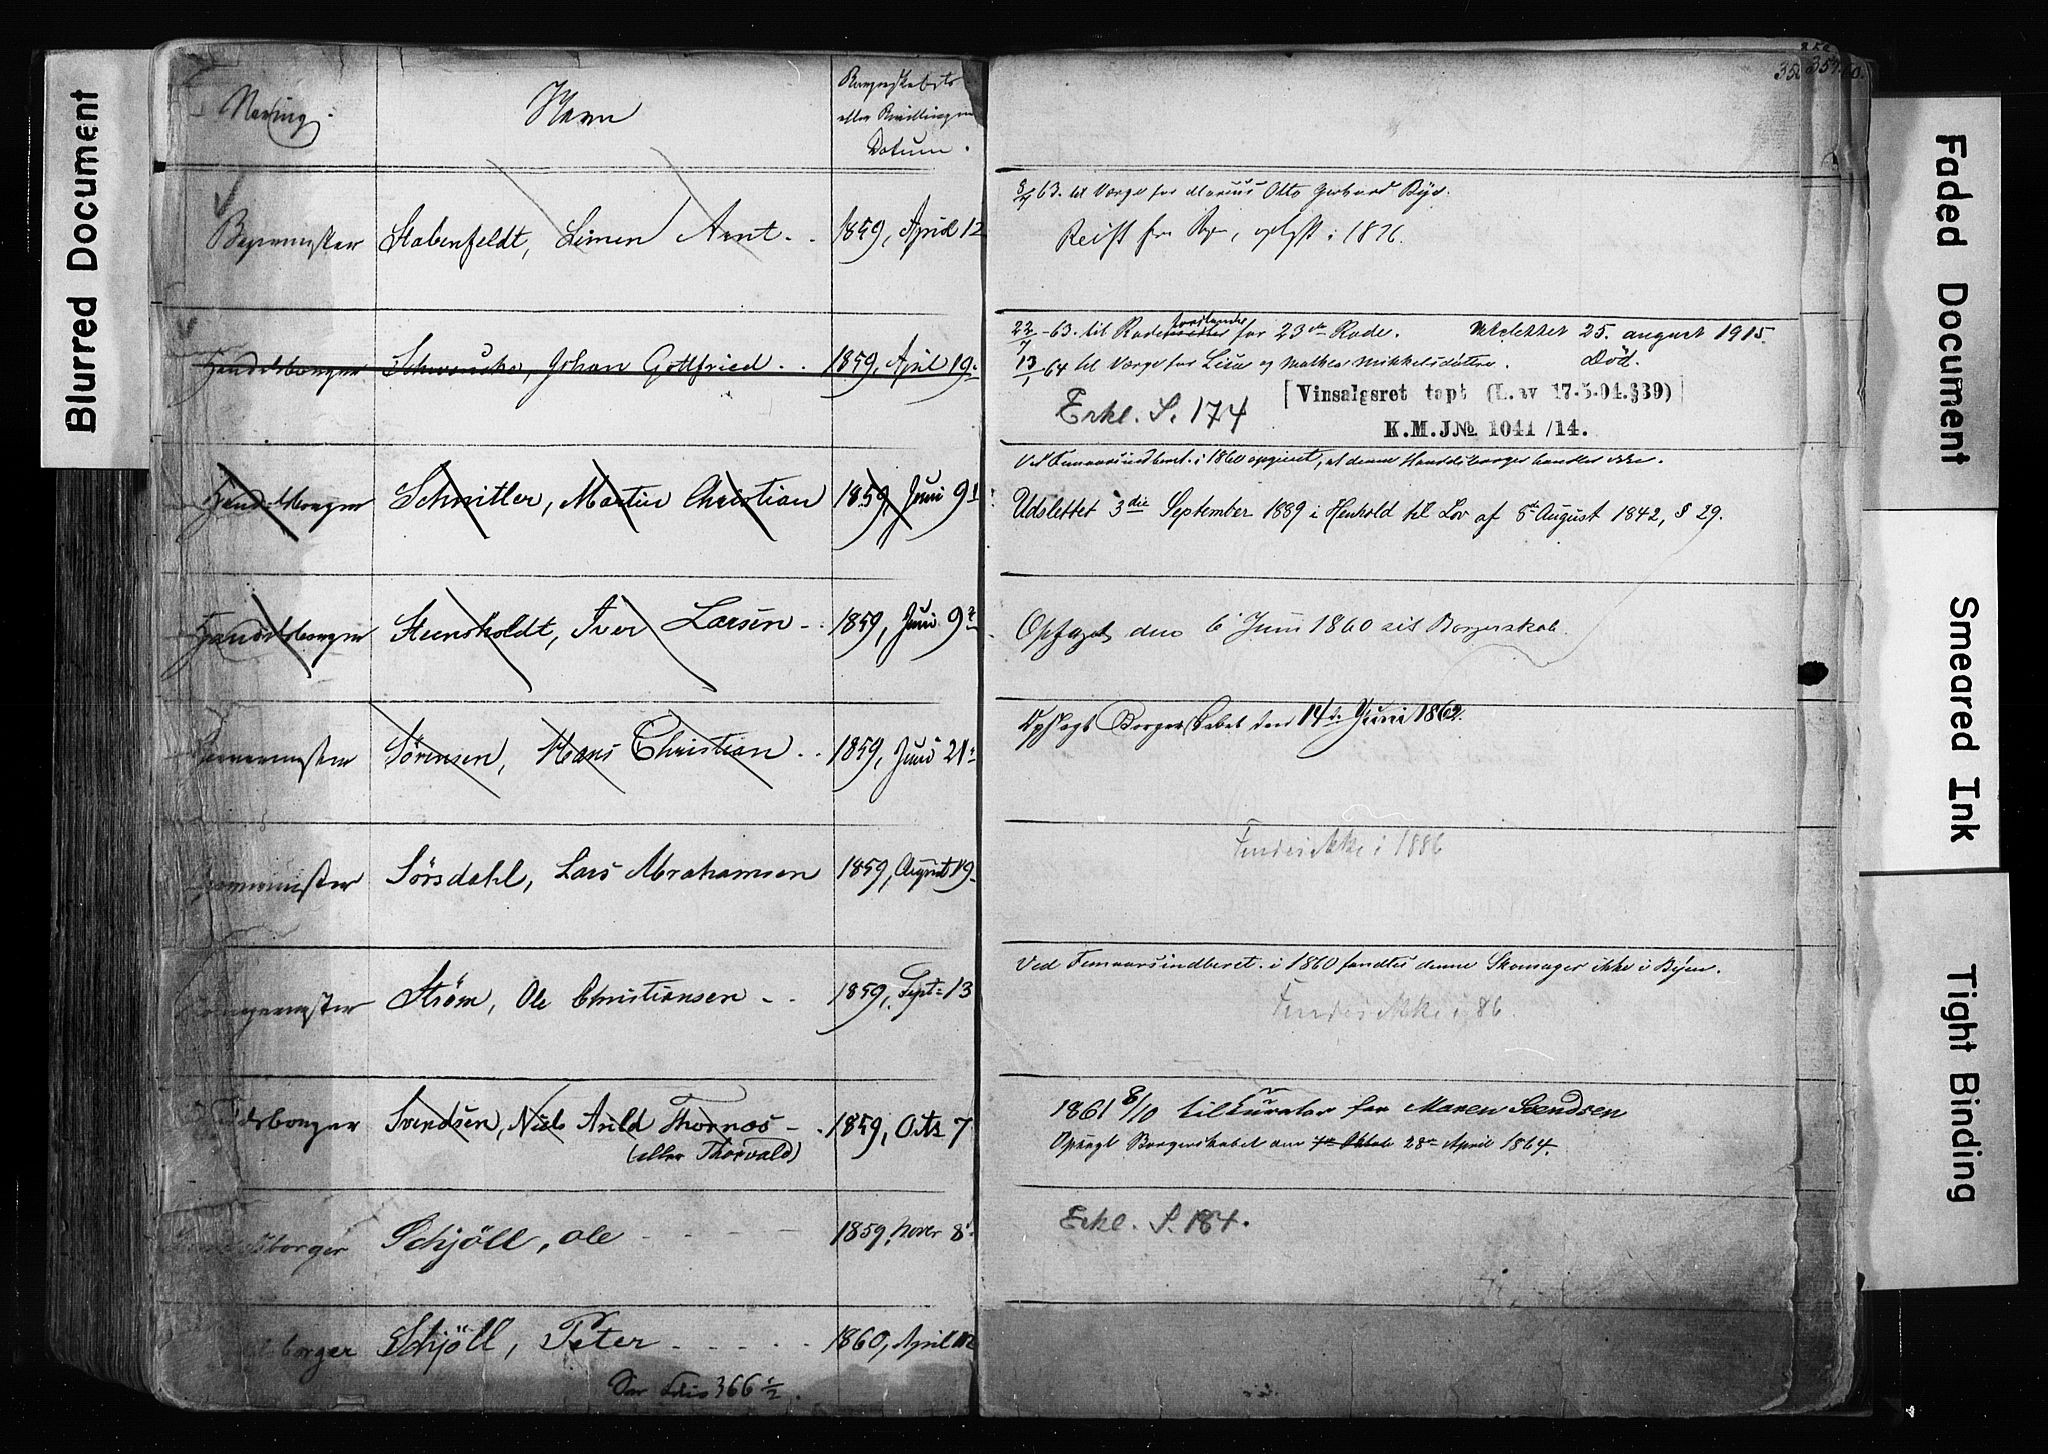 Blurred Document
Faded Document
Smeared Ink
Tight Binding
Næring.
Navn
Borgerskabets
eller Bevillingens
Datum.
Stabenfeldt, Simen Arnt. . 1859, April 12
63. til Værge for Marius Otto Gerhard
Reist fra Byen, oplyst i 1876.
Handelsborger Schwenske, Johan Gottfried . . 1859, April 19.
22/7 -63. til Rode forstander for 23de Rode. Utslettet 25. august 1915.
13/1 -64 til Værge for Lise og Mikkelsdøttre. Død.
Erkl. S. 174
[Vinsalgsret tapt (L. av 17-5-04. §39)]
K. M. J№ 1041 /14.
Handelsborger Schnitler, Martin Christian 1859, Juni 9
Ved Femaarsindberet. i 1860 opgivet, at denne Handelsborger handler ikke.
Udslettet 3die September 1889 i Henhold til Lov af 8de August 1842, § 29.
Handelsborger Steensholdt, Iver Larsen - . 1859, Juni 9
Opsagt den 6 Juni 1860 sit Borgerskab.
Sørensen, Hans Christian . . 1859, Juni 21
Opsagt Borgerskabet den 14de Juni 1862.
Sörsdahl, Lars Abrahamsen 1859, August 19.
Findes ikke i 1886
Strøm, Ole Christiansen - . 1859, Sept: 13
Ved Femaarsindberet. i 1860 fandtes denne Skomager ikke i Byen.
Findes ikke i 86.
Svendsen, Niels Arild Thornæs - . 1859, Octr 7
(eller Thorvald)
1861 8/10 til Curator for Maren Svendsen
Opsagt Borgerskabet den 7de Oktob 28de April 1864.
Schjöll, Ole - - - - 1859, Novr 8
Erkl. S. 184.
Schjöll, Peter - . - . . 1860, April 12
Folio 366 1/2.